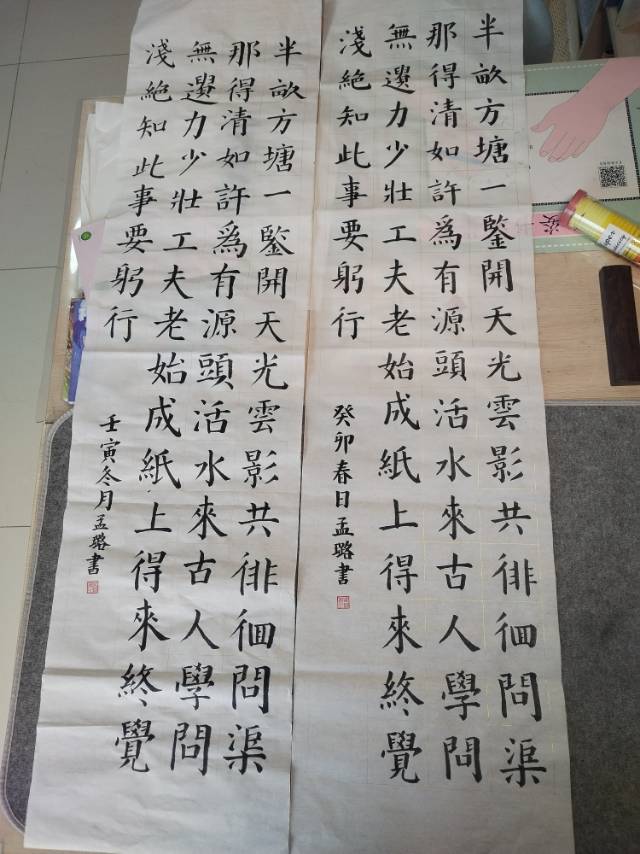 半畝方塘一鑒開天光雲影共徘徊問渠
那得清如許爲有源頭活水來古人學問
無遺力少壯工夫老始成紙上得來終覺
淺絕知此事要躬行
癸卯春日孟璐書
半畝方塘一鑒開天光雲影共徘徊問渠
那得清如許爲有源頭活水來古人學問
無遺力少壯工夫老始成紙上得來終覺
淺絕知此事要躬行
壬寅冬月孟璐書
姿